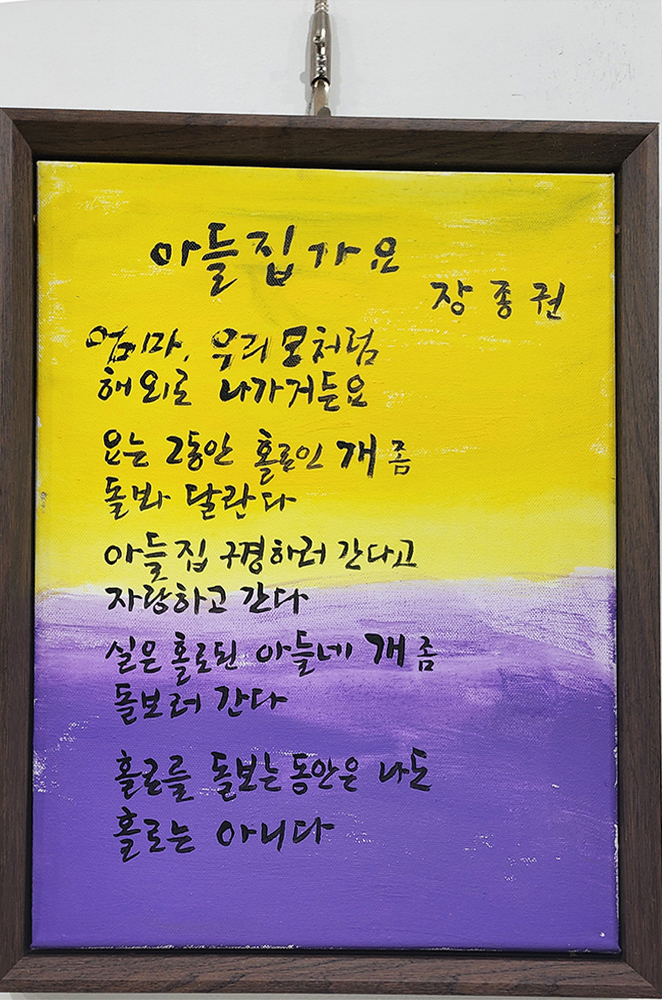 아들집가요
장종권
엄마, 우리 모처럼
해외로 나가거든요
요는 그동안 홀로인 개 좀
돌봐 달란다
아들집 구경하러 간다고
자랑하고 간다
실은 홀로된 아들네 개 좀
돌보러 간다
홀로를 돌보는 동안은 나도
홀로는 아니다